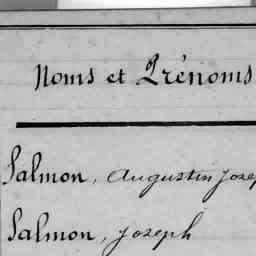 Noms et Prénoms
Salmon, Augustin
Salmon, Joseph